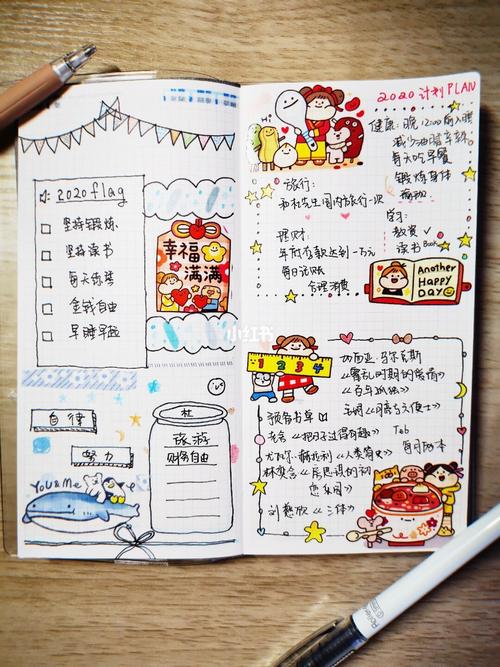 2020 flag
坚持锻炼
坚持读书
每天练琴
金钱自由
早睡早起
幸福
满满
小红书
自律
努力
You & Me
杜
旅游
财务自由
2020 计划 PLAN
健康: 晚12:00前入睡
每天吃早餐
锻炼身体
Hi
旅行:
和杜先生国内旅行一次
学习:
教资 ✓
读书 Book
理财:
年底存款达到一万元
每日记账
合理消费
Another
Happy
Day
1 2 3 4
加西亚·马尔克斯
《霍乱时期的爱情》
《百年孤独》
毛姆《月亮与六便士》
预备书单
老舍《把日子过得有趣》
Tab
每月两本
尤瓦尔·赫拉利《人类简史》
林奕含《房思琪的初
恋乐园》
刘慈欣《三体》